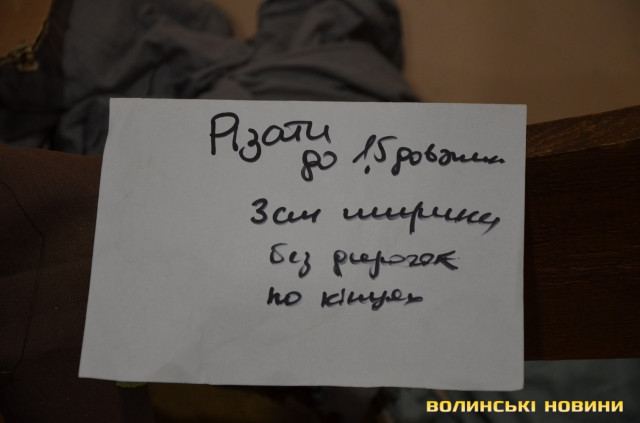 Різати
до 1,5 довжини
3 см ширину
без дирочок
по кінцях
ВОЛИНСЬКІ НОВИНИ